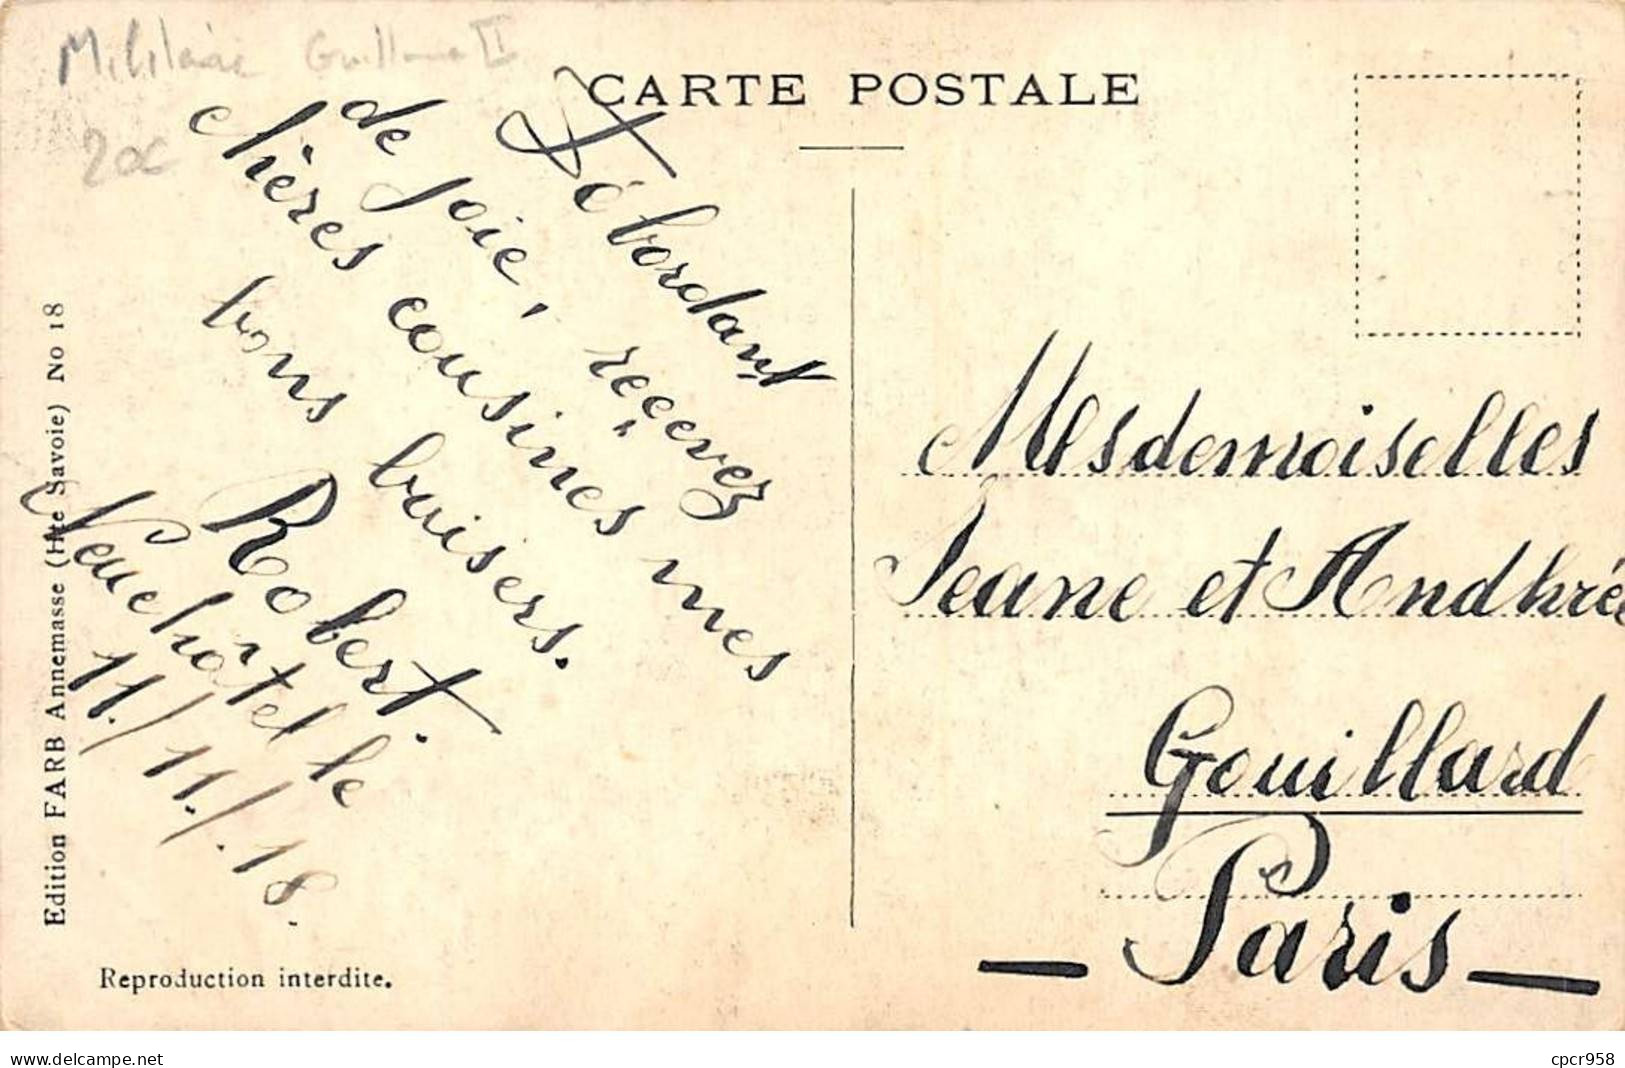 Militaire Guillaume II
20c
CARTE POSTALE
Débordant
de joie, recevez
chères cousines mes
bons baisers.
Robert.
Neuchâtel le
11./11./.18.
Mesdemoiselles
Jeane et Andhrée
Gouillard
— Paris —
Edition FARB Annemasse (Hte Savoie) No 18
Reproduction interdite.
delcampe.net
cpcr958